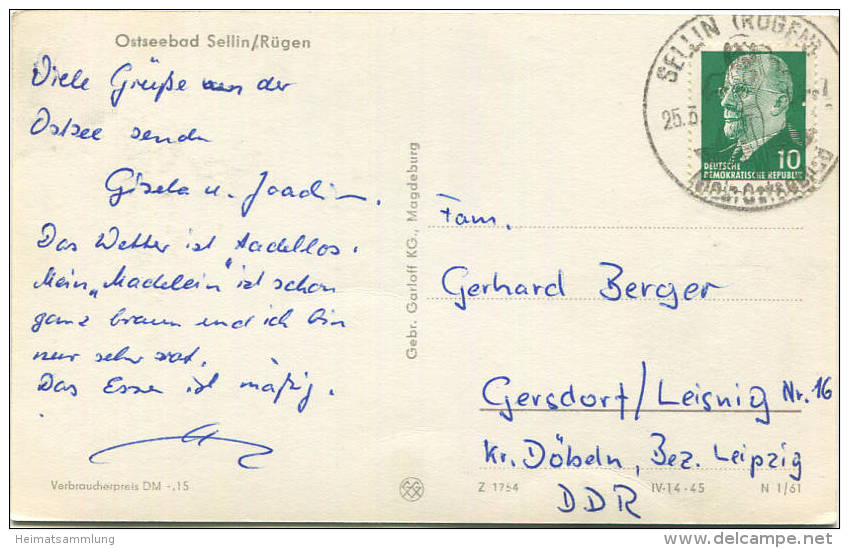 Ostseebad Sellin/Rügen
Viele Grüße von der
Ostsee senden
Gisela u. Joachim.
Das Wetter ist tadellos.
Mein „Madelein" ist schon
ganz braun und ich bin
nur sehr rot.
Das Essen ist mäßig.
Verbraucherpreis DM -,15
Gebr. Garloff KG., Magdeburg
SELLIN (RÜGEN)
25.
DEUTSCHE
DEMOKRATISCHE REPUBLIK
10
Fam.
Gerhard Berger
Gersdorf/Leisnig Nr. 16
Kr. Döbeln, Bez. Leipzig
DDR
Z 1754
IV-14-45
N 1/61
Heimatsammlung
www.delcampe.net